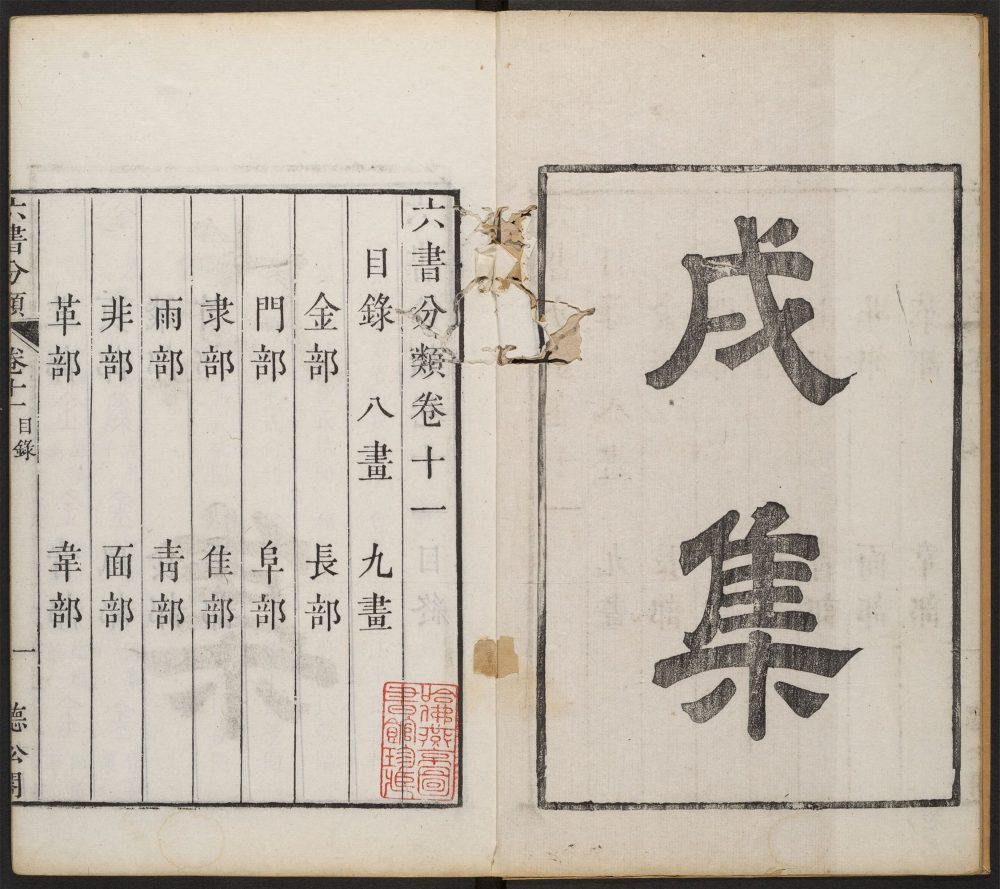 戌集
六書分類卷十一
目錄 八畫 九畫
金部 長部
門部 阜部
隶部 隹部
雨部 靑部
非部 面部
革部 韋部
六書分類 卷十一目錄 一
哈佛燕京圖書館珍藏